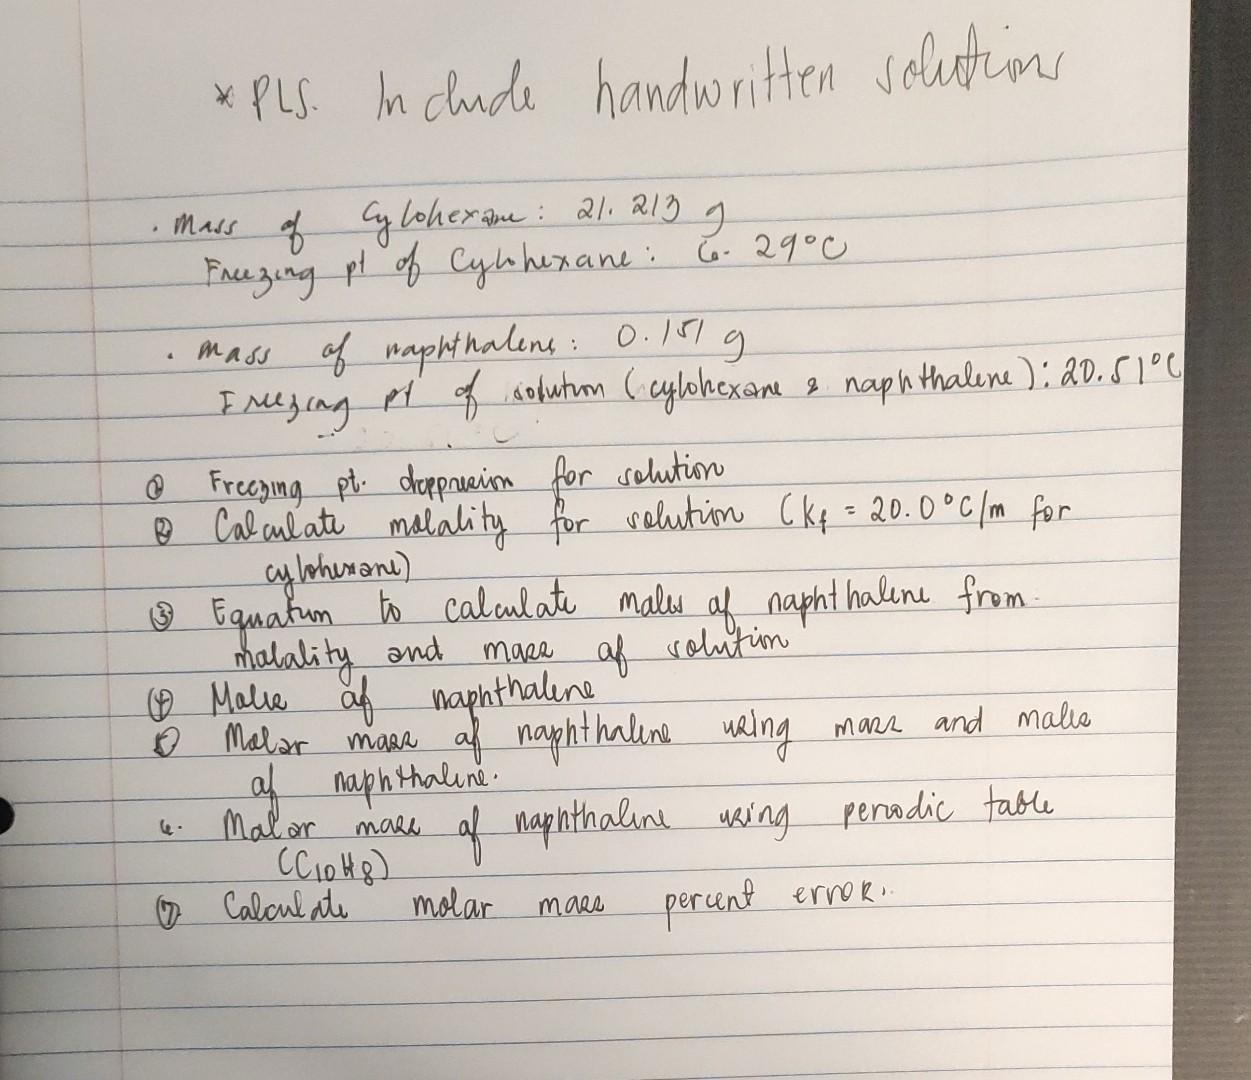 * PLS. Include handwritten solutions
. Mass of Cylohexane: 21.213 g
Freezing pt of Cylohexane: 6.29°C
. Mass of naphthalene: 0.151 g
Freezing pt of solution (cylohexane & naphthalene): 20.51°C
① Freezing pt. deppression for solution
② Calculate molality for solution (kf = 20.0°C/m for
cylohexane)
③ Equation to calculate moles of naphthalene from
molality and mass of solution
④ Moles of naphthalene
⑤ Molar mass of naphthalene using mass and moles
of naphthalene.
6. Molar mass of naphthalene using periodic table
(C10H8)
⑦ Calculate molar mass percent error.